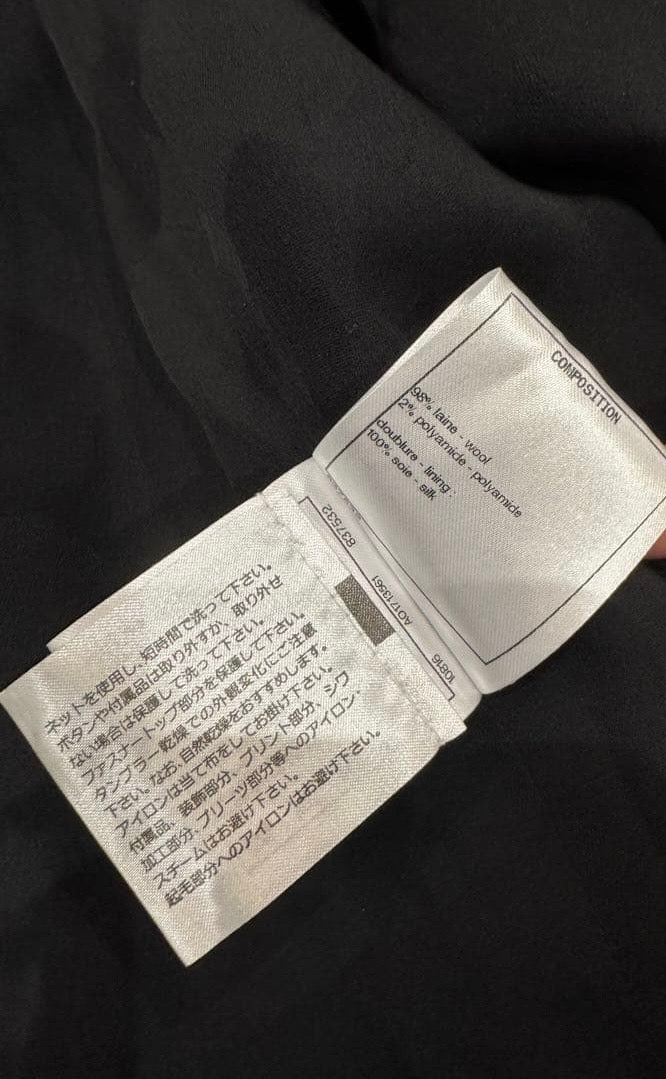 COMPOSITION
98% laine - wool
2% polyamide - polyamide
doublure - lining :
100% soie - silk
837532
A01713561
10816
ネットを使用し、短時間で洗って下さい。
ボタンや付属品は取り外すか、取り外せ
ない場合は保護して洗って下さい。
ファスナートップ部分を保護して下さい。
タンブラー乾燥での外観変化にご注意
下さい。なお、自然乾燥をおすすめします。
アイロンは当て布をしてお掛け下さい。
付属品、装飾部分、プリント部分、シワ
加工部分、プリーツ部分等へのアイロン・
スチームはお避け下さい。
起毛部分へのアイロンはお避け下さい。